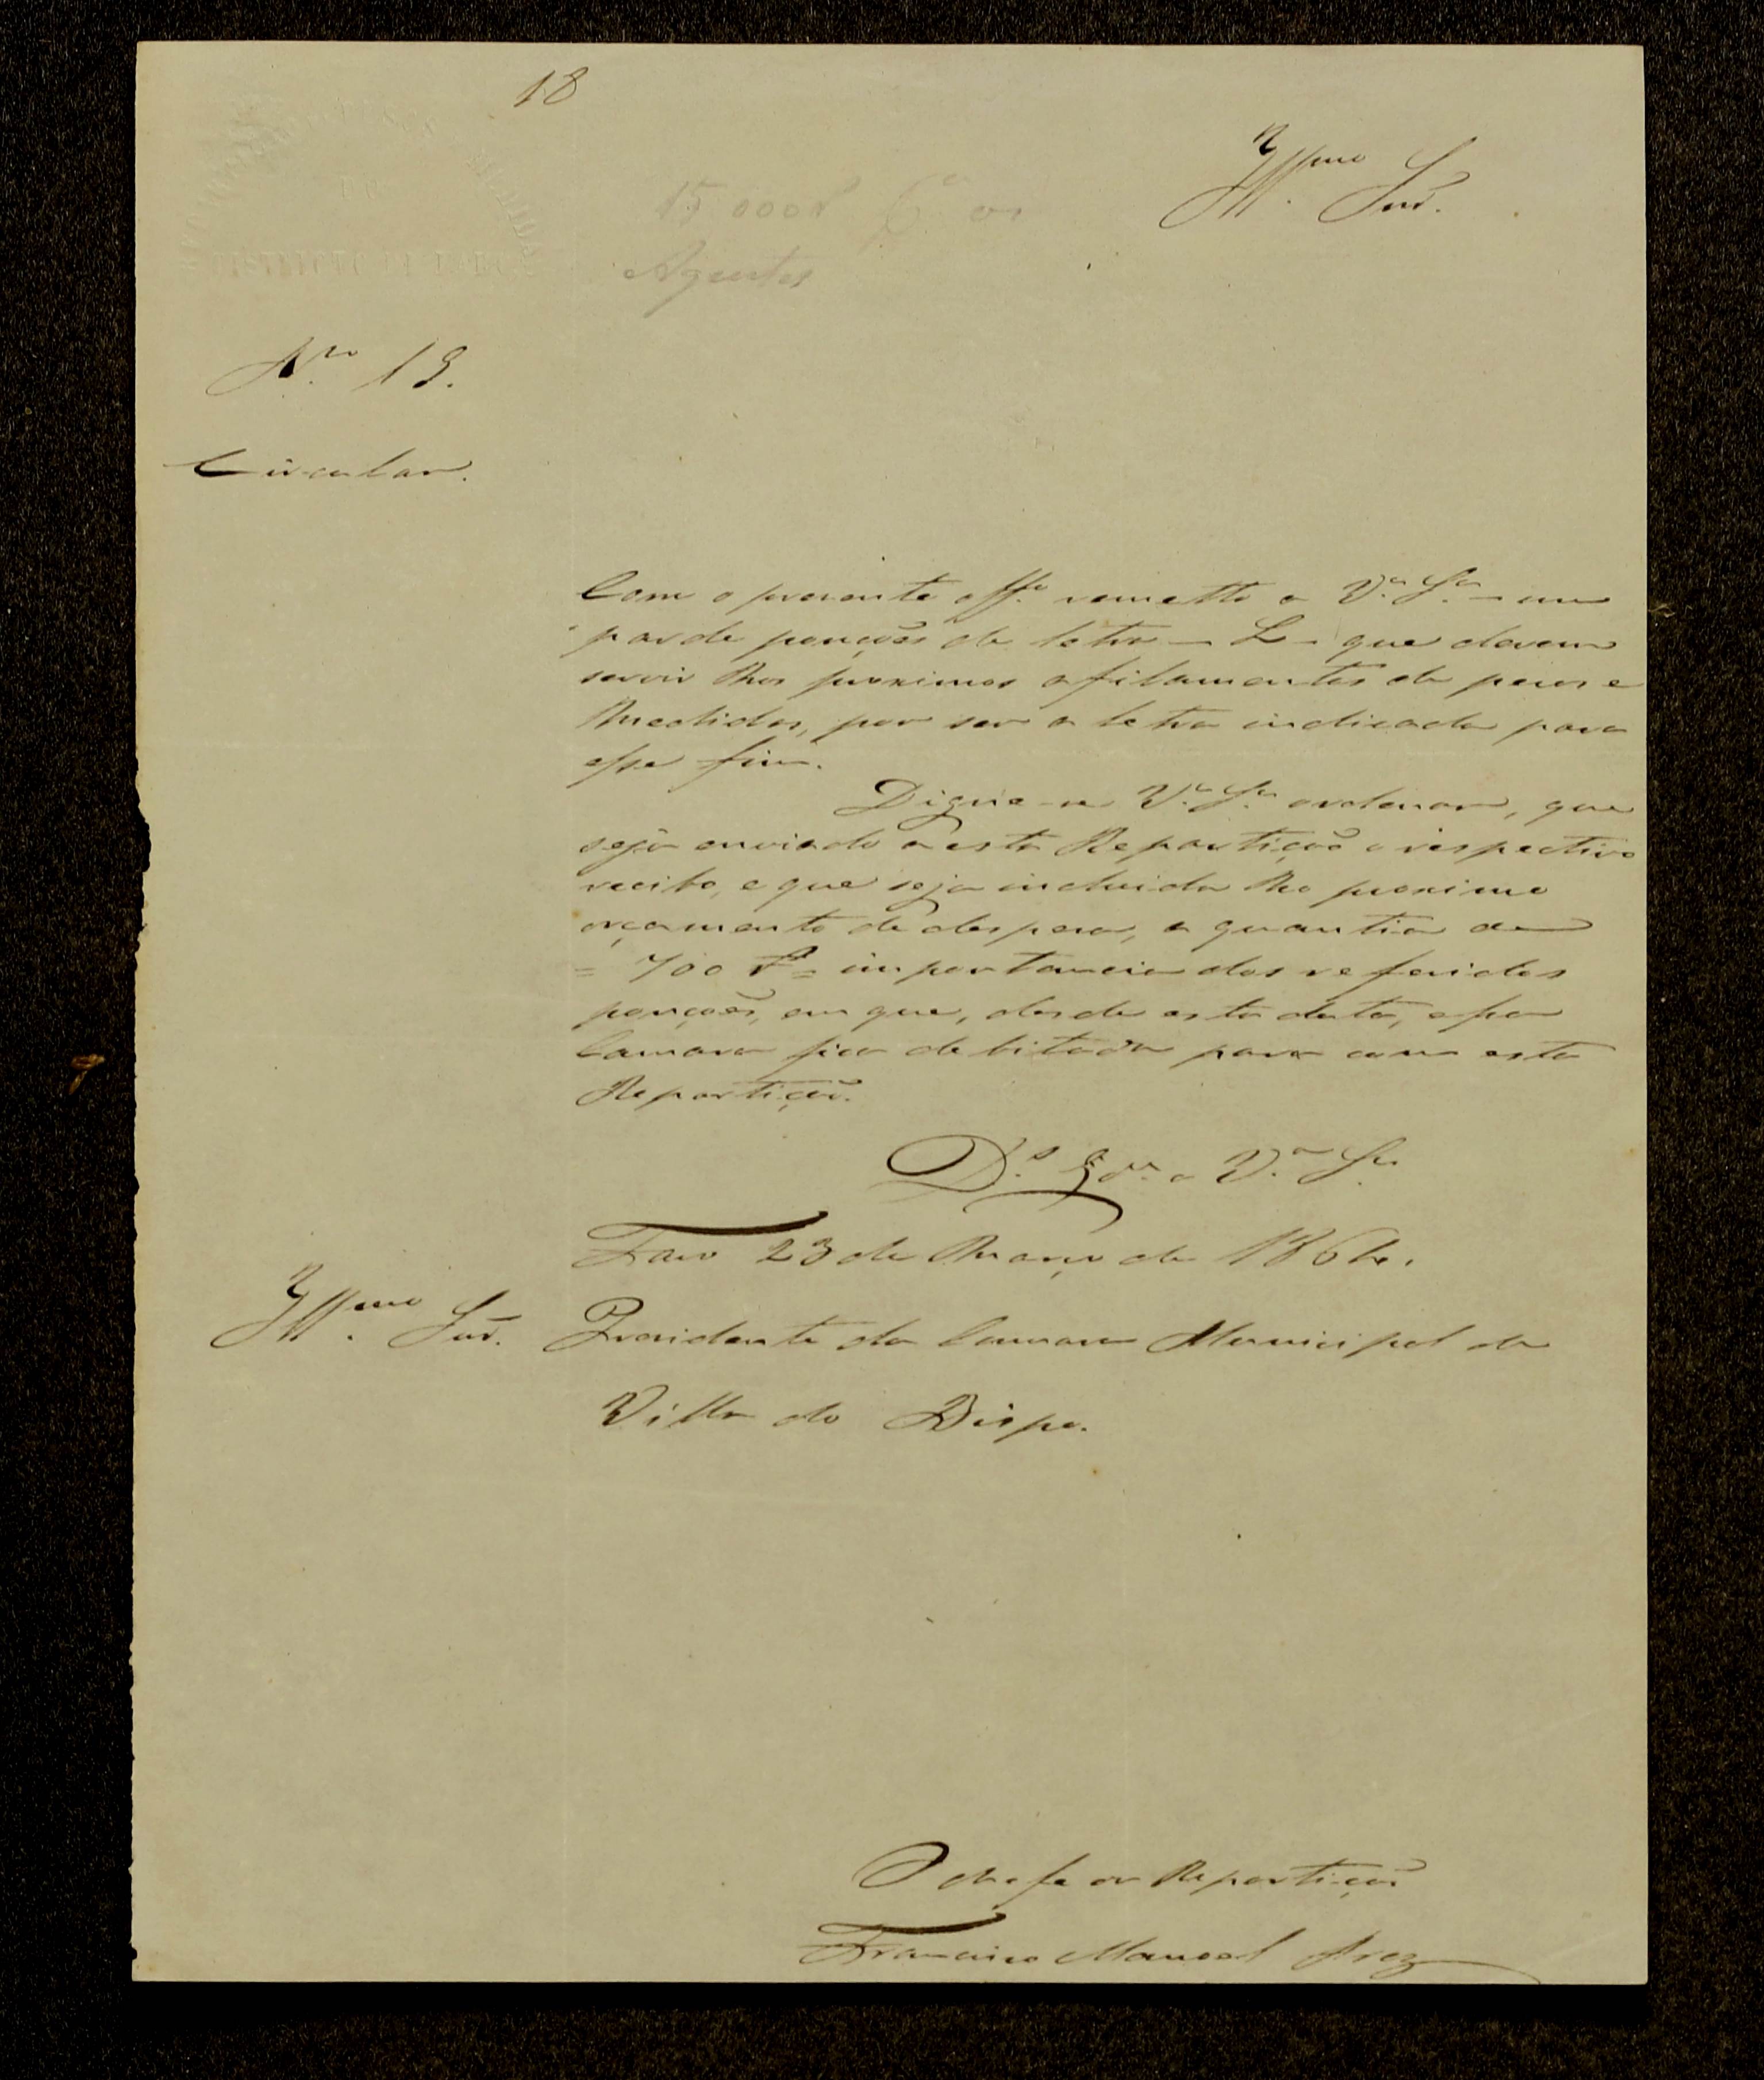 18
Ill.mo Snr.
15000
Agentes
DISTRICTO DE FARO
N.ro 13.
Circular.
Com o presente off.o remetto a V.a S.a – um
par de ponções da letra – L – que devem
servir nos proximos afilamentos de pesos e
medidas, por ser a letra indicada para
esse fim.
Digne-se V.a S.a ordenar, que
seja enviado a esta Repartição o respectivo
recibo, e que seja incluida no proximo
orçamento de despesa, a quantia de
= 700 rs = importancia dos referidos
ponções, em que, desde esta data, essa
Camara fica debitada para com esta
Repartição.
D.s G.de a V.a S.a
Faro 23 de Março de 1864.
Ill.mo Snr. Presidente da Camara Municipal da
Villa do Bispo.
O chefe da Repartição
Francisco Manoel